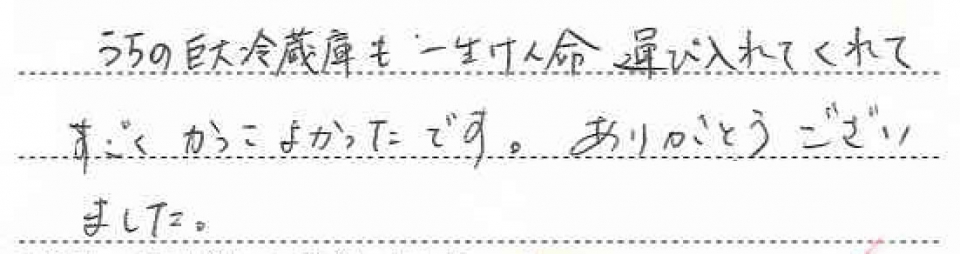 うちの巨大冷蔵庫も一生けん命運び入れてくれて
すごくかっこよかったです。ありがとうござい
ました。